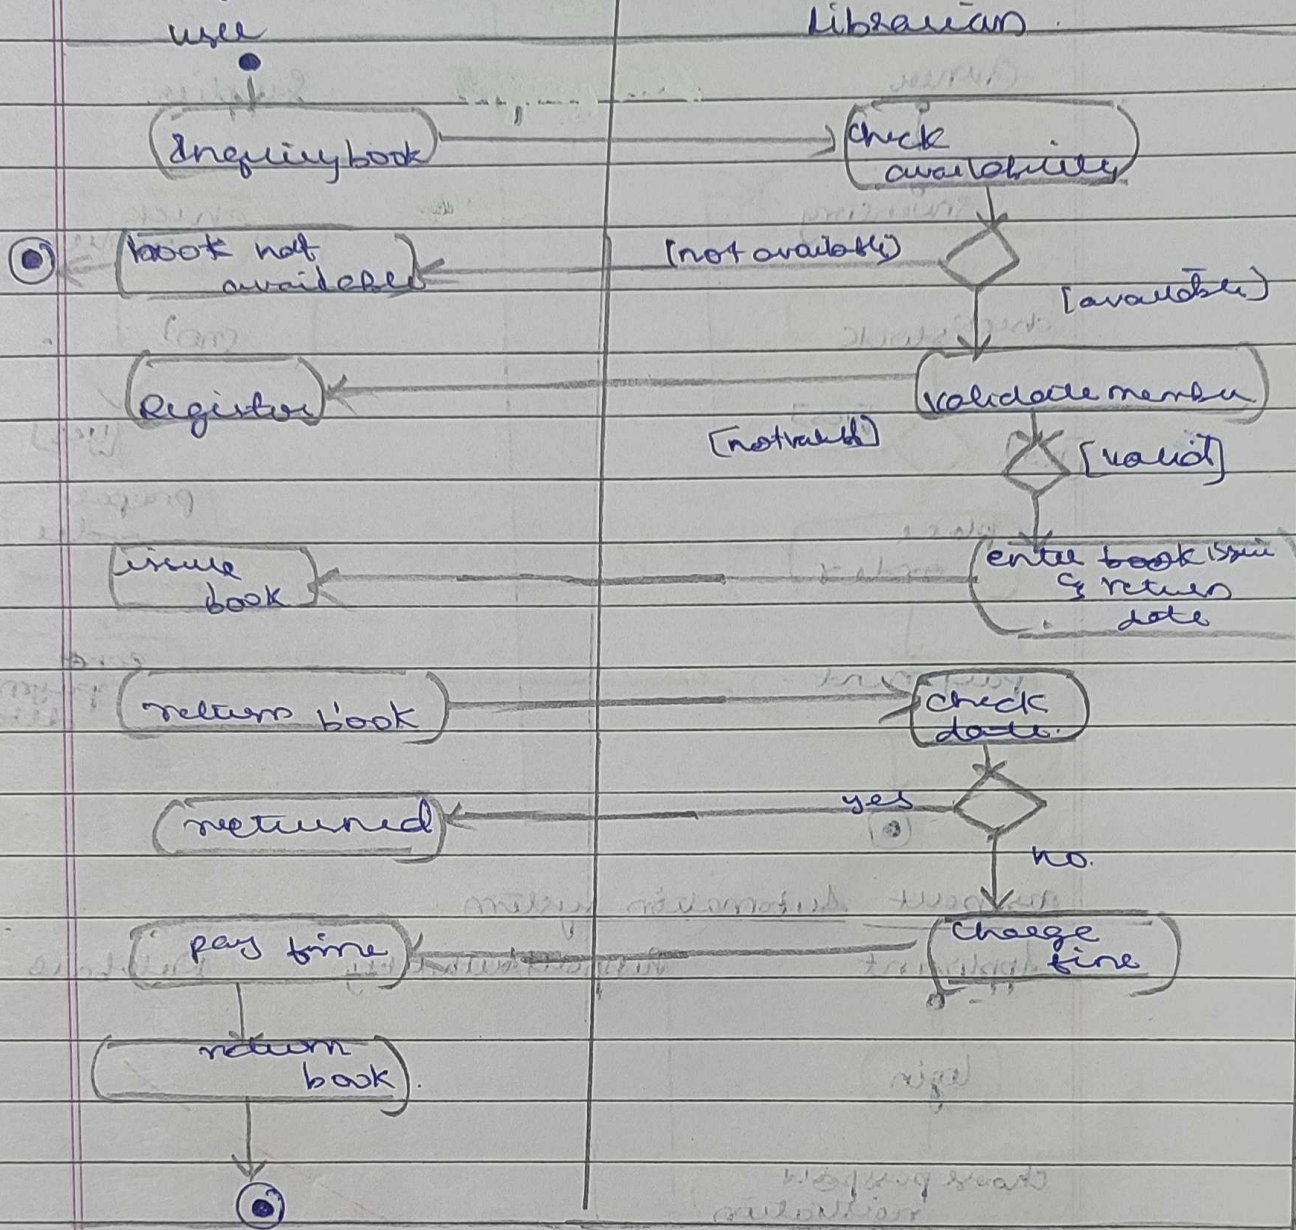 user
Librarian
Inquiry book
check
availability
book not
available
[not available]
[available]
Register
validate member
[not valid]
[valid]
issue
book
enter book issue
& return
date
return book
check
date.
returned
yes
no.
pay fine
charge
fine
return
book